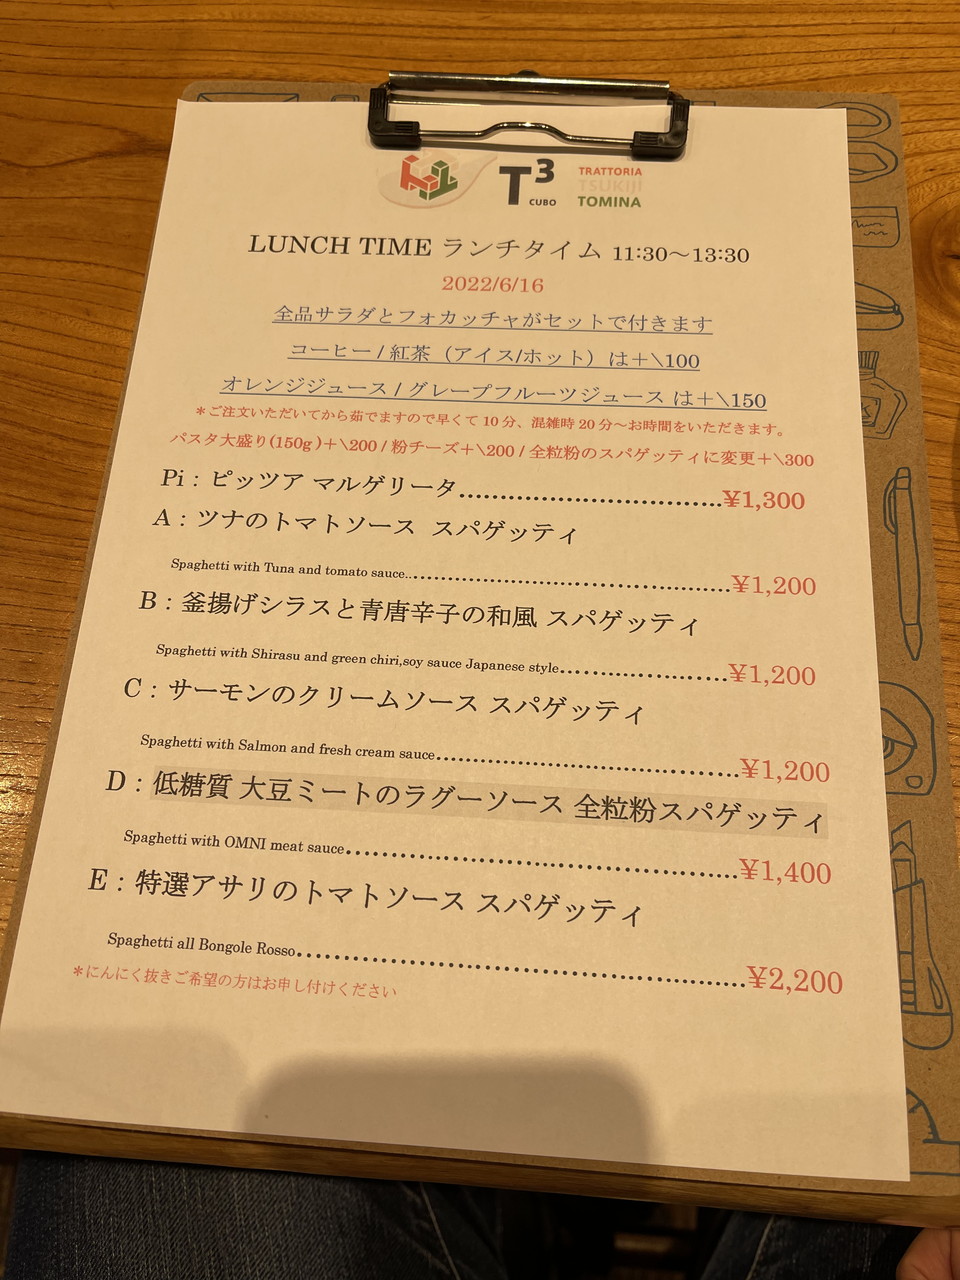 T³ CUBO
TRATTORIA
TSUKIJI
TOMINA
LUNCH TIME ランチタイム 11:30～13:30
2022/6/16
全品サラダとフォカッチャがセットで付きます
コーヒー / 紅茶（アイス/ホット）は＋\100
オレンジジュース / グレープフルーツジュース は＋\150
＊ご注文いただいてから茹でますので早くて 10 分、混雑時 20 分～お時間をいただきます。
パスタ大盛り(150g )＋\200 / 粉チーズ＋\200 / 全粒粉のスパゲッティに変更＋\300
Pi：ピッツア マルゲリータ........................................¥1,300
A：ツナのトマトソース スパゲッティ
Spaghetti with Tuna and tomato sauce........................................¥1,200
B：釜揚げシラスと青唐辛子の和風 スパゲッティ
Spaghetti with Shirasu and green chiri,soy sauce Japanese style........................¥1,200
C：サーモンのクリームソース スパゲッティ
Spaghetti with Salmon and fresh cream sauce........................................¥1,200
D：低糖質 大豆ミートのラグーソース 全粒粉スパゲッティ
Spaghetti with OMNI meat sauce........................................¥1,400
E：特選アサリのトマトソース スパゲッティ
Spaghetti all Bongole Rosso........................................¥2,200
＊にんにく抜きご希望の方はお申し付けください